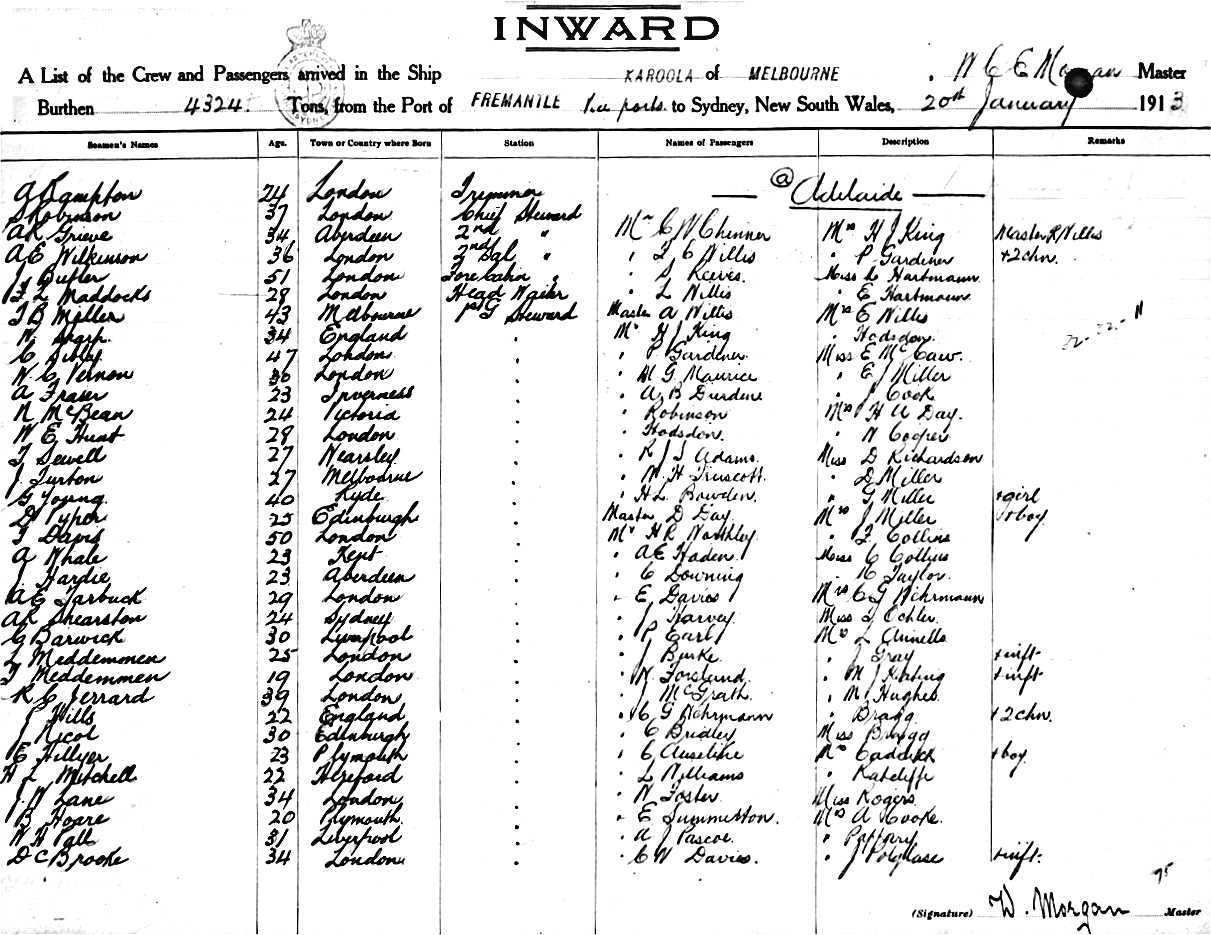 INWARD
A List of the Crew and Passengers arrived in the Ship KAROOLA of MELBOURNE . W C E Morgan Master
Burthen 4324. Tons, from the Port of FREMANTLE ports to Sydney, New South Wales, 20th January 1913
Seamen's Names Age. Town or Country where Born Station Names of Passengers Description Remarks
24 London Trimmer @ Adelaide
S Robinson 37 London Chief Steward
A R Grieve 34 Aberdeen 2nd " Mr C W Chinner Mrs H J King Master R Willis
A E Wilkinson 36 London 2nd Sal " " F C Willis " P Gardiner +2chn.
J Butler 51 London Fore Cabin " " S Reeves. Miss L Hartmann
F L Maddocks 28 London Head Waiter " L Willis " E Hartmann
T B Miller 43 Melbourne 1st G Steward Master A Willis Mrs E Willis
W Sharp 34 England " Mr H J King " Hodsdon
C Sibley 47 London " " P Gardiner Miss E McCaw.
W C Vernon 30 London " " H G Maurice " E J Miller
A Fraser 23 Inverness " " A B Durdin " J Cook
N McBean 24 Victoria " " Robinson Mrs H A Day.
W E Hunt 28 London " " Hodsdon. " N Cooper
T Sewell 27 " " R J S Adams. Miss D Richardson
J Turton 27 Melbourne " " W H Truscott. " D Miller
G Young. 40 Ryde " " H L Bowden. " G Miller +girl
D Pyper 25 Edinburgh " Master D Day Mrs J Miller +boy
T Davis 50 London " Mr H R " F Collins
A Whale 23 Kent " " A E Haden Miss C Collins
J Hardie 23 Aberdeen " " C Downing " Taylor.
A E Tarbuck 29 London " " E Davies Mrs C G Wehrmann
A R Shearston 24 Sydney " " J Harvey Miss
G Barwick 30 Liverpool " " P Earl Mrs L
L Meddemmen 25 London " " J Burke " J Gray +inft
T Meddemmen 19 London " " N Forslund " M J Keating +inft
R C Jerrard 39 London " " J McGrath. " M Hughes.
J Hills 22 England " " C G Wehrmann " Bragg +2chn.
J Nicol 30 Edinburgh " " C Bridley Miss Bragg
E Hillyer 23 Plymouth " " C Anseline Mrs Caddick +boy
H L Mitchell 22 Hereford " " L Williams " Ratcliffe
J W Lane 34 London " " N Foster Miss Rogers
B Hoare 20 Plymouth " " E Summerton. Mrs A Cooke.
W H 31 Liverpool " " A J Pascoe. "
D C Brooke 34 London " " C W Davies. " J Polglase +inft.
75
(Signature) W. Morgan Master